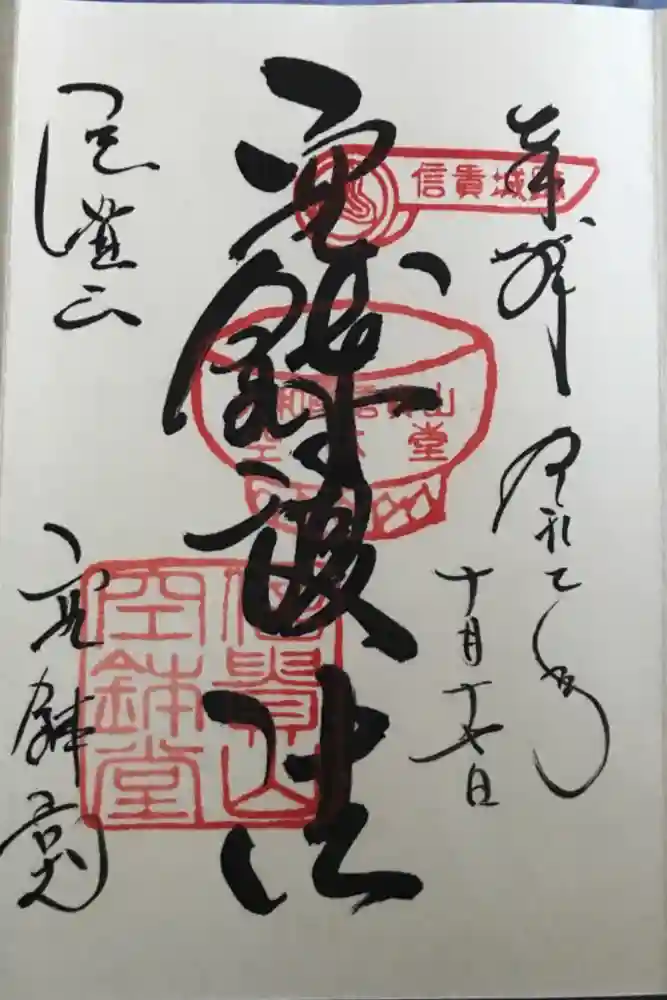 奉拝
令和二年
十月十七日
信貴城跡
空鉢護法
信貴山
空鉢堂
信貴山
空鉢堂